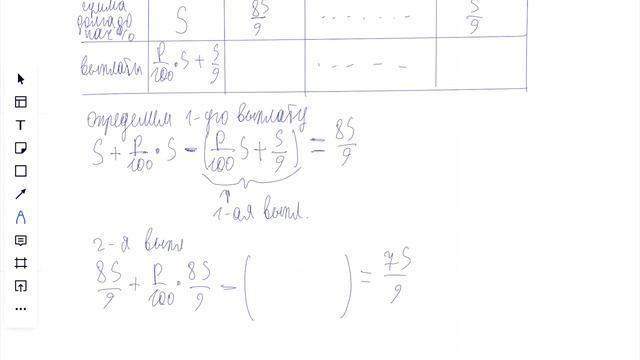 сумма долга до нач % S 8S/9 ....... S/9
выплаты P/100 · S + S/9 ... - -
определим 1-ую выплату
S + P/100 · S - (P/100 S + S/9) = 8S/9
1-ая выпл.
2-я выпл
8S/9 + P/100 · 8S/9 - ( ) = 7S/9
T
A